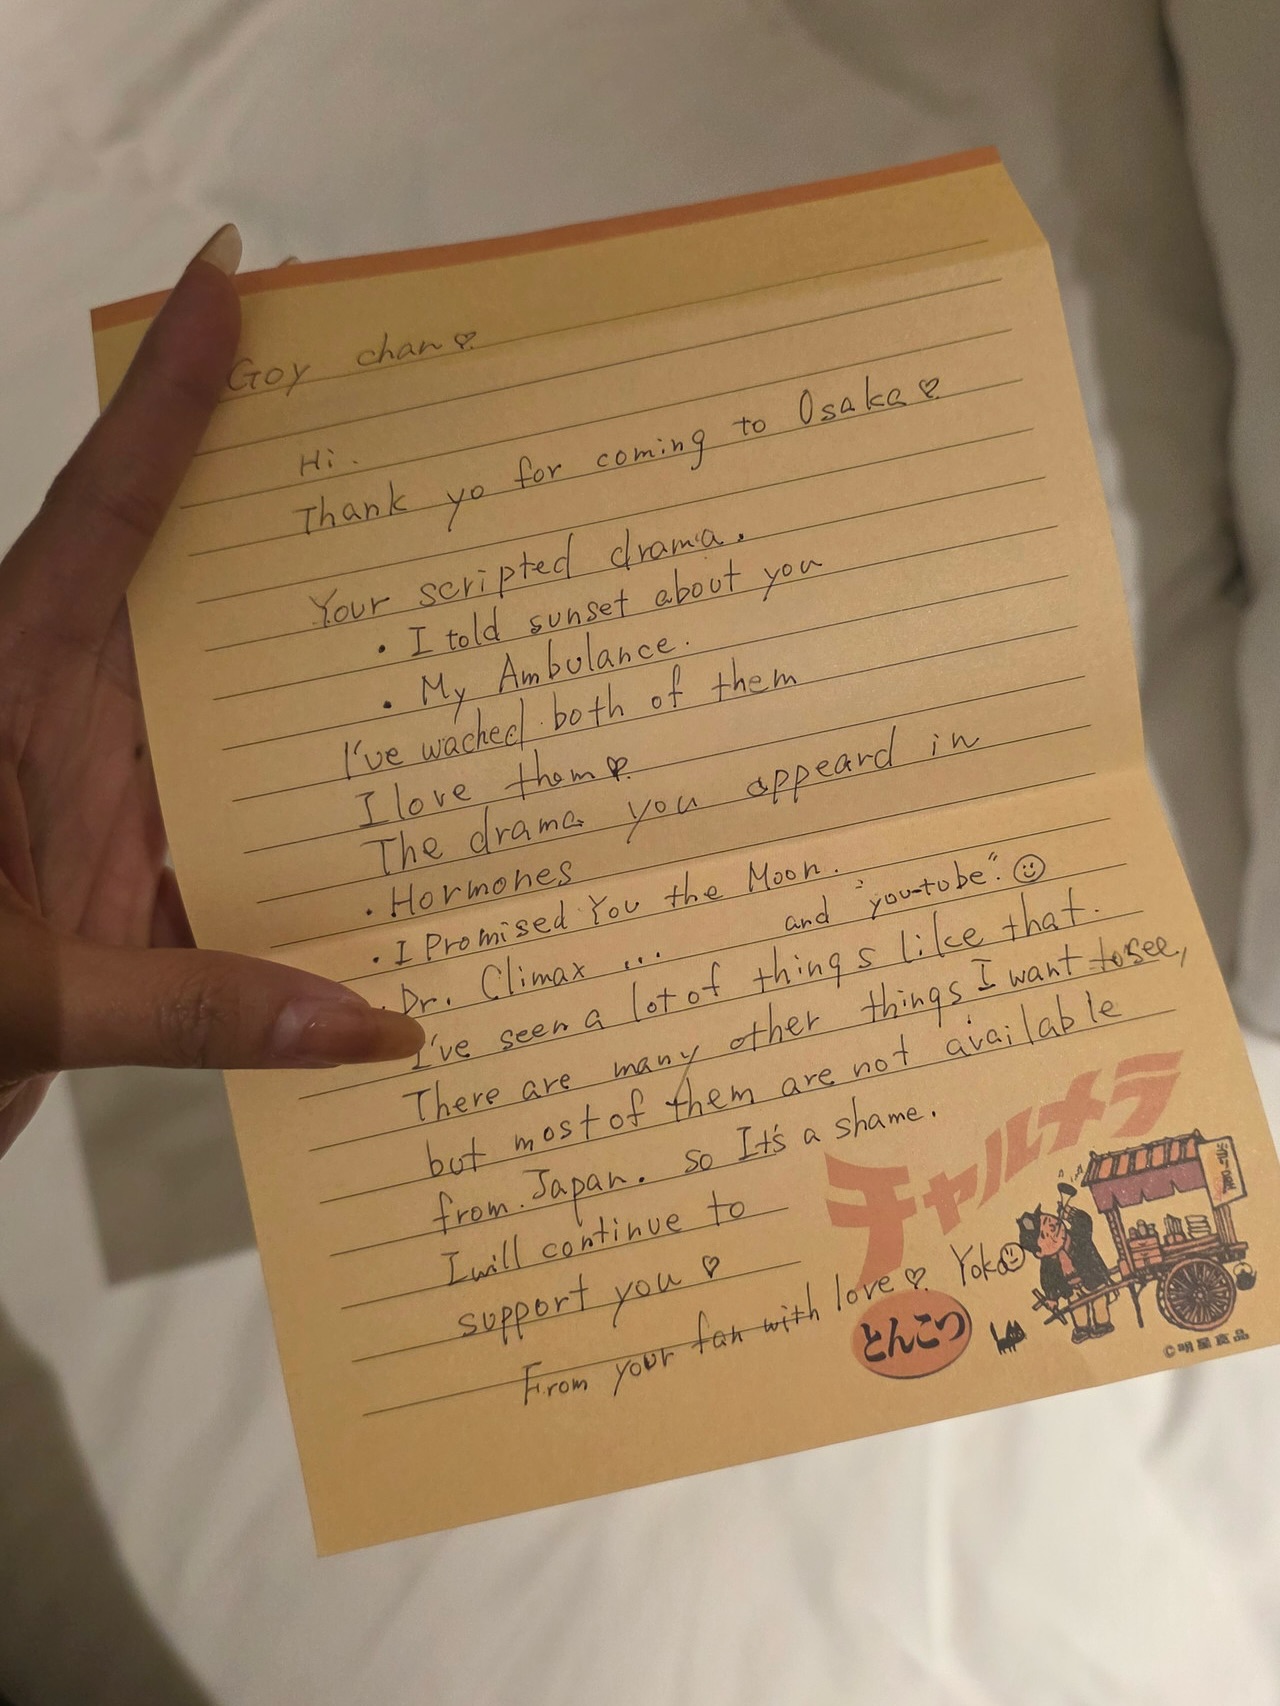 Goy chan♡
Hi.
Thank yo for coming to Osaka♡
Your scripted drama.
・I told sunset about you
・My Ambulance.
I've wached both of them
I love them♡.
The drama you appeard in
・Hormones
・I Promised You the Moon.
・Dr. Climax ... and "you-tube". ☺
I've seen a lot of things like that.
There are many other things I want to see,
but most of them are not available
from Japan. so It's a shame.
I will continue to
support you ♡
From your fan with love ♡. Yoko☺
チャルメラ
とんこつ
当り屋
©明星食品